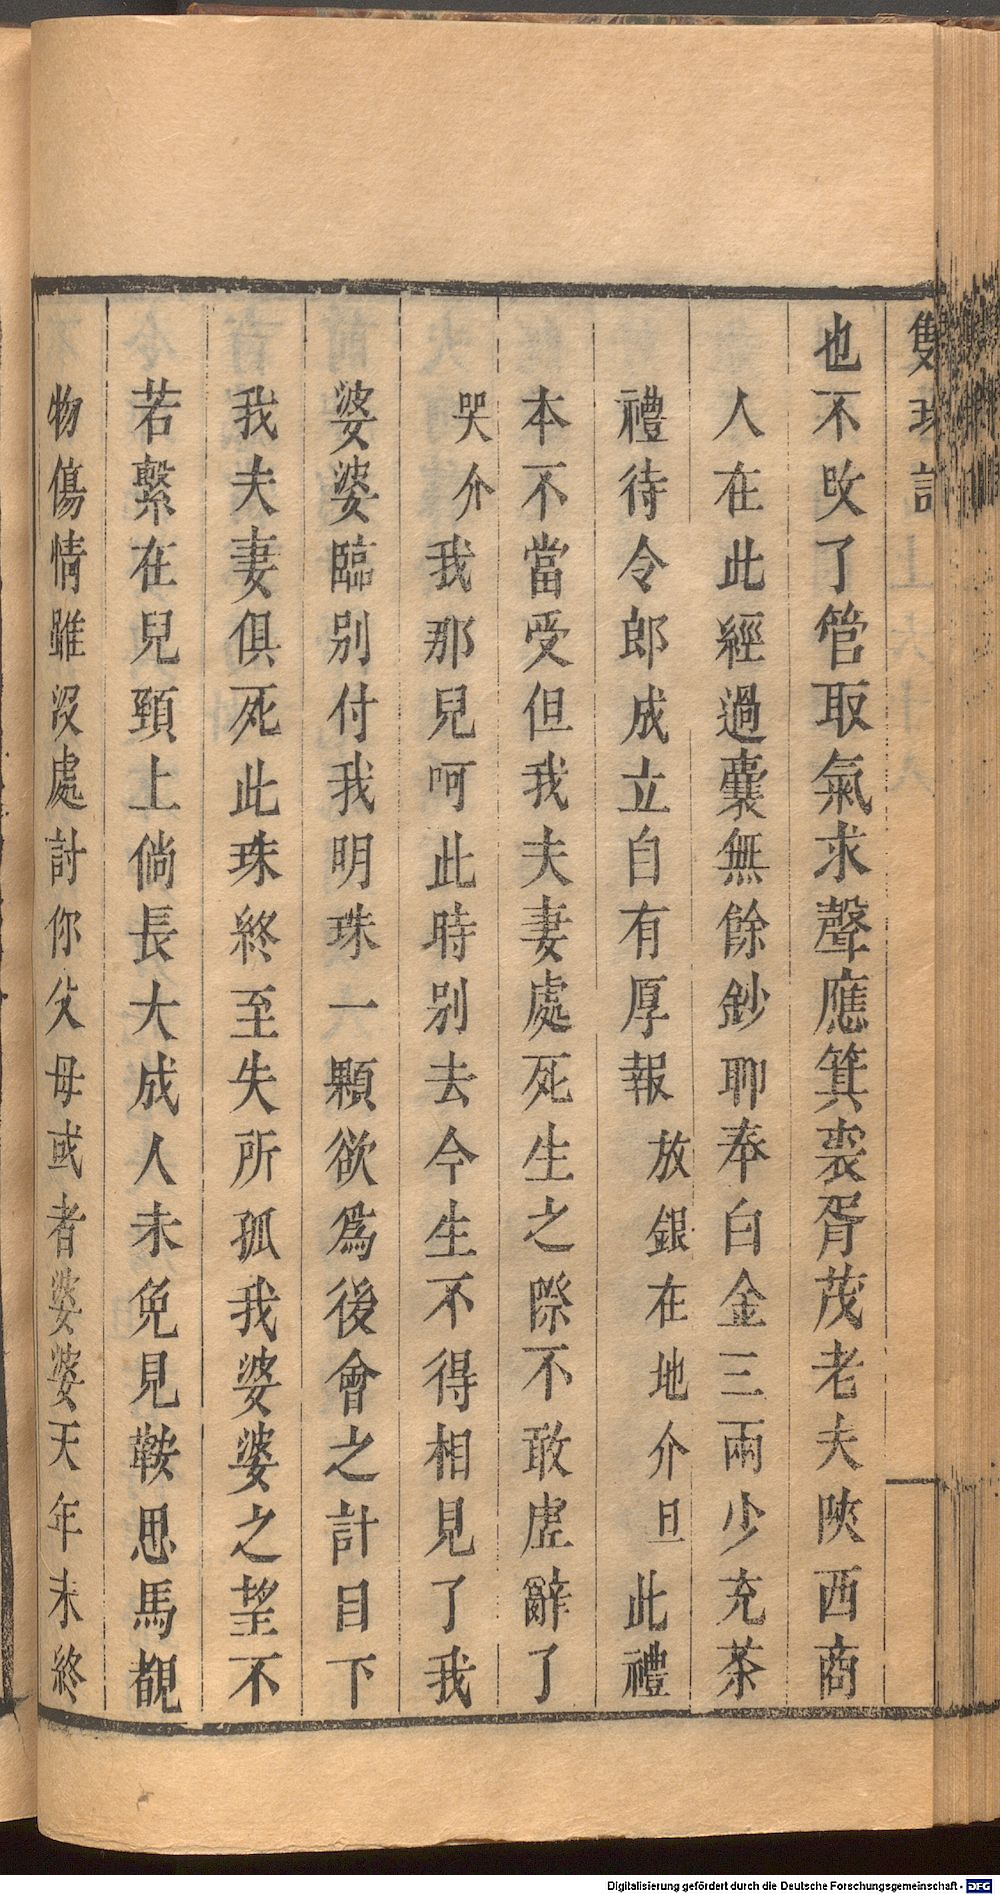 雙珠記
也不改了管取氣求聲應箕裘胥茂老夫陝西商
人在此經過囊無餘鈔聊奉白金三兩少充茶
禮待令郎成立自有厚報放銀在地介旦此禮
本不當受但我夫妻處死生之際不敢虛辭了
哭介我那兒呵此時別去今生不得相見了我
婆婆臨別付我明珠一顆欲爲後會之計目下
我夫妻俱死此珠終至失所孤我婆婆之望不
若繫在兒頸上倘長大成人未免見鞍思馬覩
物傷情雖沒處討你父母或者婆婆天年未終
Digitalisierung gefördert durch die Deutsche Forschungsgemeinschaft - DFG